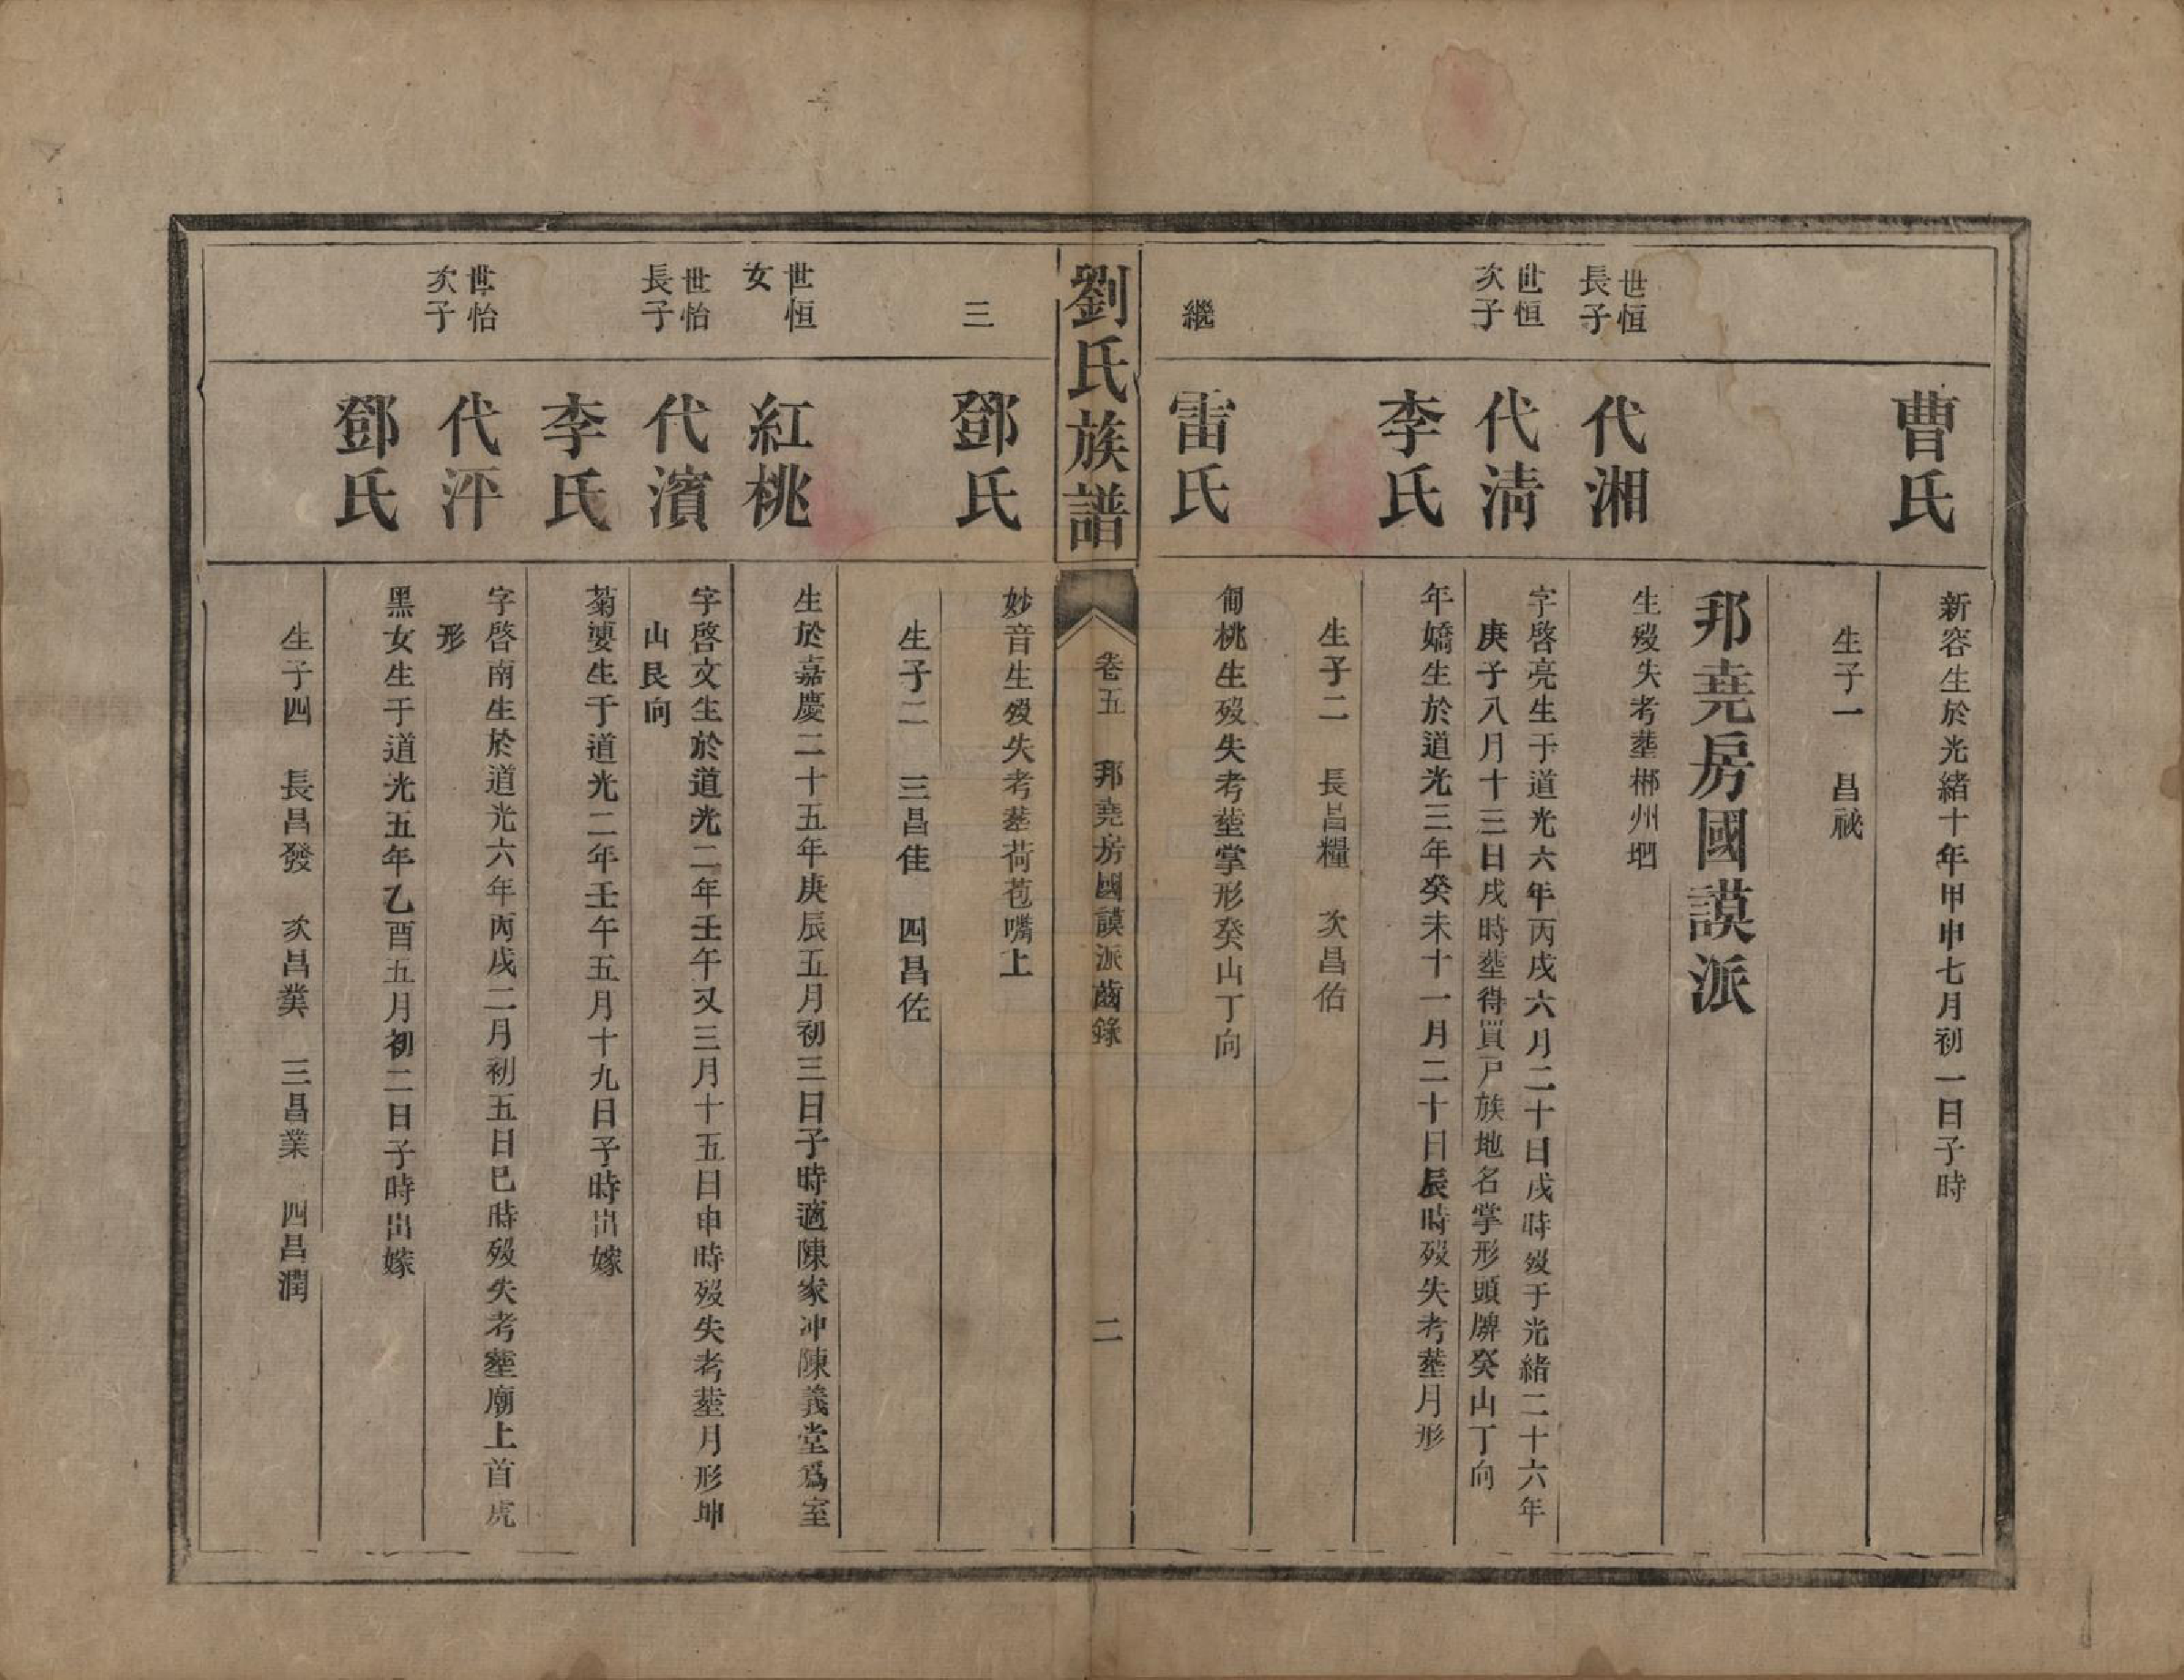 曹氏
新容生於光緒十年甲申七月初一日子時
生子一 昌祕
邦堯房國謨派
世恒
長子
代湘
生歿失考塟郴州垇
世恒
次子
代淸
字啓亮生于道光六年丙戌六月二十日戌時歿于光緒二十六年
庚子八月十三日戌時塟得買尸族地名掌形頭牌癸山丁向
李氏
年嬌生於道光三年癸未十一月二十日辰時歿失考塟月形
生子二 長昌糧 次昌佑
繼
雷氏
甸桃生歿失考塟掌形癸山丁向
劉氏族譜
卷五 邦堯房國謨派齒錄 二
三
鄧氏
妙音生歿失考塟荷苞嘴上
生子二 三昌佳 四昌佐
世恒
女
紅桃
生於嘉慶二十五年庚辰五月初三日子時適陳家冲陳義堂爲室
世怡
長子
代濱
字啓文生於道光二年壬午又三月十五日申時歿失考塟月形坤
山艮向
李氏
菊㜢生于道光二年壬午五月十九日予時出嫁
世怡
次子
代泙
字啓南生於道光六年丙戌二月初五日巳時歿失考塟廟上首虎
形
鄧氏
黑女生于道光五年乙酉五月初二日子時出嫁
生子四 長昌發 次昌糞 三昌業 四昌潤